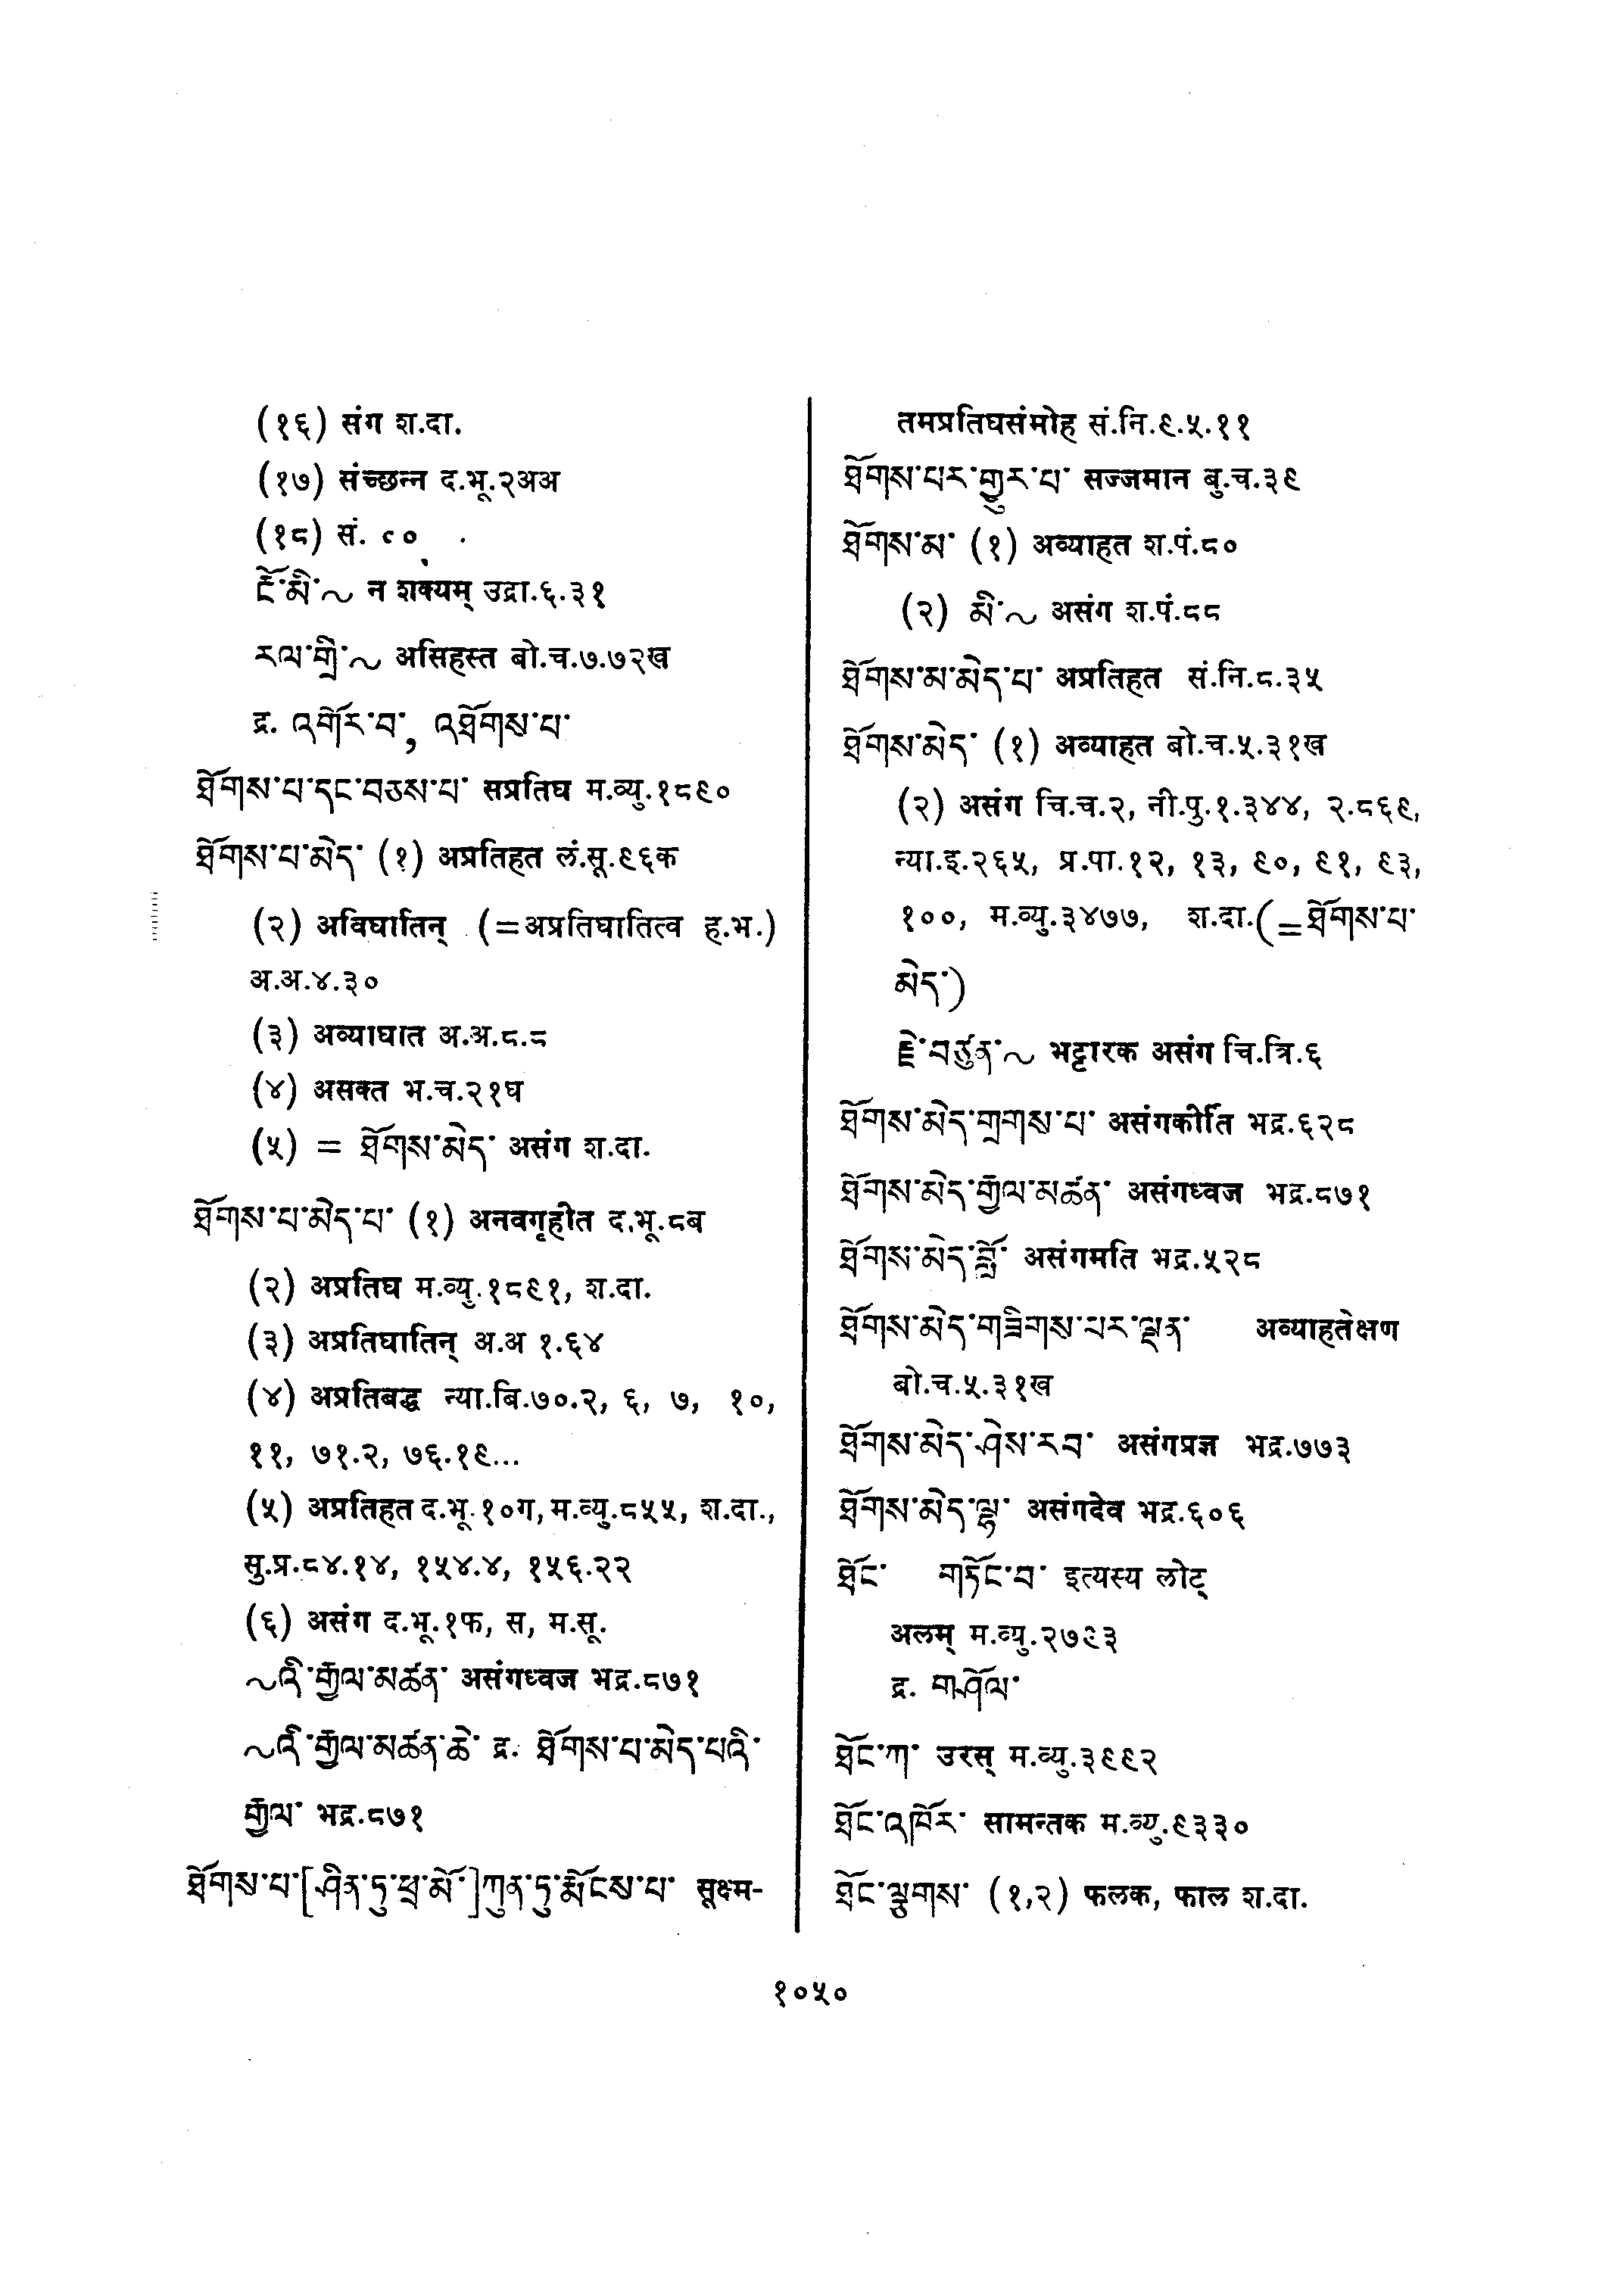 (१६) संग श.दा.
(१७) संच्छन्न द.भू.२अअ
(१८) सं.
ངོ་མི་~ न शक्यम् उद्रा.६.३१
རལ་གྲི་~ असिहस्त बो.च.७.७२ख
द्र. འགོར་བ་, འཐོགས་པ་
ཐོགས་པ་དང་བཅས་པ་ सप्रतिघ म.व्यु.१८९०
ཐོགས་པ་མེད་ (१) अप्रतिहत लं.सू.९६क
(२) अविघातिन् (=अप्रतिघातित्व ह.भ.)
अ.अ.४.३०
(३) अव्याघात अ.अ.८.८
(४) असक्त भ.च.२१घ
(५) = ཐོགས་མེད་ असंग श.दा.
ཐོགས་པ་མེད་པ་ (१) अनवगृहीत द.भू.८ब
(२) अप्रतिघ म.व्यु.१८९१, श.दा.
(३) अप्रतिघातिन् अ.अ १.६४
(४) अप्रतिबद्ध न्या.बि.७०.२, ६, ७, १०,
११, ७१.२, ७६.१९...
(५) अप्रतिहत द.भू.१०ग, म.व्यु.८५५, श.दा.,
सु.प्र.८४.१४, १५४.४, १५६.२२
(६) असंग द.भू.१फ, स, म.सू.
~འི་རྒྱལ་མཚན་ असंगध्वज भद्र.८७१
~འི་རྒྱལ་མཚན་ཆེ་ द्र. ཐོགས་པ་མེད་པའི་
རྒྱལ་ भद्र.८७१
ཐོགས་པ་[ཤིན་ཏུ་ཕྲ་མོ་]ཀུན་ཏུ་རྨོངས་པ་ सूक्ष्म-
तमप्रतिघसंमोह सं.नि.९.५.११
ཐོགས་པར་གྱུར་པ་ सज्जमान बु.च.३९
ཐོགས་མ་ (१) अव्याहत श.पं.८०
(२) མི་~ असंग श.पं.८८
ཐོགས་མ་མེད་པ་ अप्रतिहत सं.नि.८.३५
ཐོགས་མེད་ (१) अव्याहत बो.च.५.३१ख
(२) असंग चि.च.२, नी.पु.१.३४४, २.८६९,
न्या.इ.२६५, प्र.पा.१२, १३, ९०, ९१, ९३,
१००, म.व्यु.३४७७, श.दा.(=ཐོགས་པ་
མེད་)
རྗེ་བཙུན་~ भट्टारक असंग चि.त्रि.६
ཐོགས་མེད་གྲགས་པ་ असंगकीर्ति भद्र.६२८
ཐོགས་མེད་རྒྱལ་མཚན་ असंगध्वज भद्र.८७१
ཐོགས་མེད་བློ་ असंगमति भद्र.५२८
ཐོགས་མེད་གཟིགས་པར་ལྡན་ अव्याहतेक्षण
बो.च.५.३१ख
ཐོགས་མེད་ཤེས་རབ་ असंगप्रज्ञ भद्र.७७३
ཐོགས་མེད་ལྷ་ असंगदेव भद्र.६०६
ཐོང་ གཏོང་བ་ इत्यस्य लोट्
अलम् म.व्यु.२७९३
द्र. གཤོལ་
ཐོང་ཀ་ उरस् म.व्यु.३९९२
ཐོང་འཁོར་ सामन्तक म.व्यु.९३३०
ཐོང་ལྕུགས་ (१,२) फलक, फाल श.दा.
१०५०